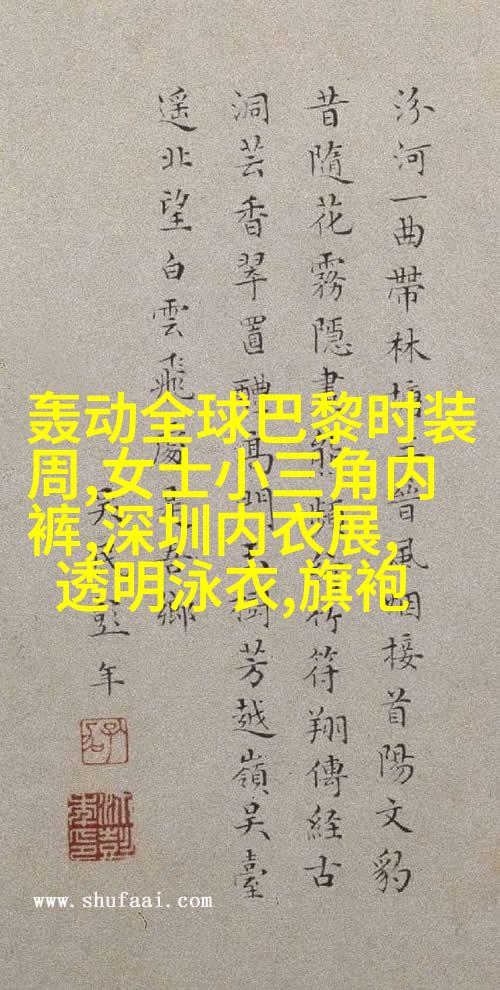 汾河一曲帶林晉風烟接首陽文豹
昔隨花霧隱書符翔傳經古
洞芸香翠置醴門芳越嶺吴臺
遥北望白雲飛處吾鄉
吴氏彭年
轰动全球巴黎时装
周,女士小三角内
裤,深圳内衣展,
透明泳衣,旗袍
www.shufaai.com